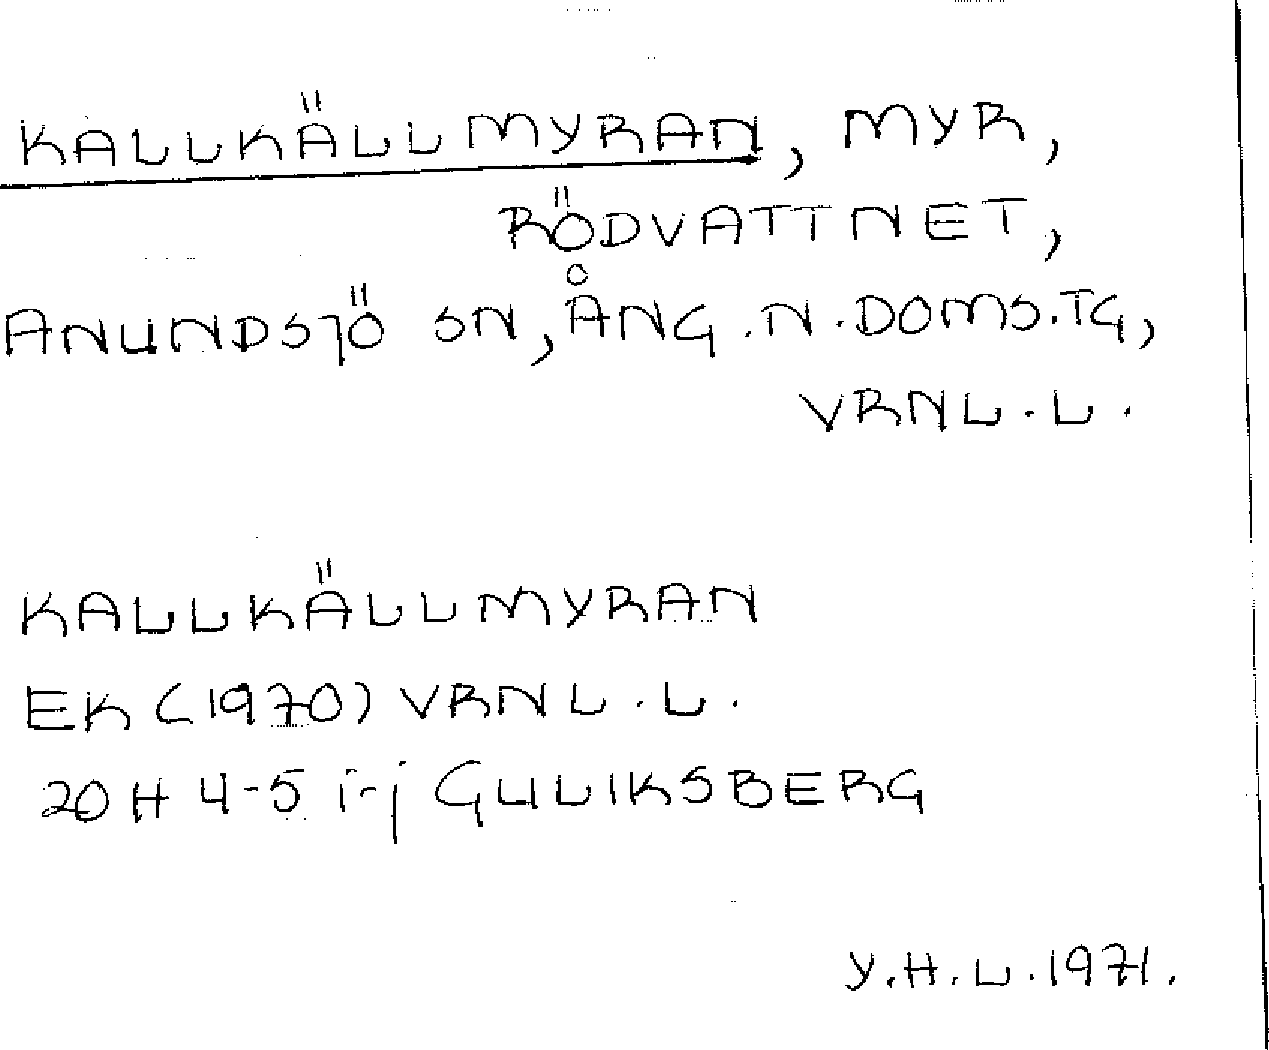 KALLKÄLLMYRAN, MYR,
RÖDVATTNET,
ANUNDSJÖ SN, ÅNG.N.DOMS.TG,
VRNL.L.
KALLKÄLLMYRAN
EK (1970) VRNL.L.
20H 4-5 i-j GULIKSBERG
Y.H.L.1971.